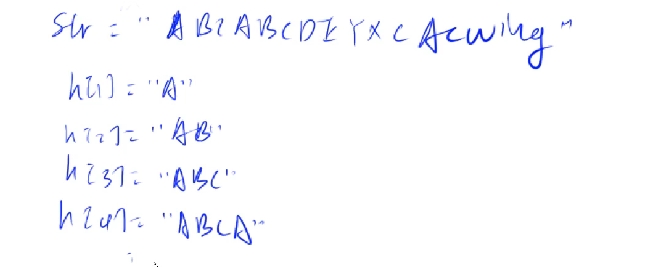 str = "ABCABCDEYXCAcwing"
h[1] = "A"
h[2] = "AB"
h[3] = "ABC"
h[4] = "ABCA"
: